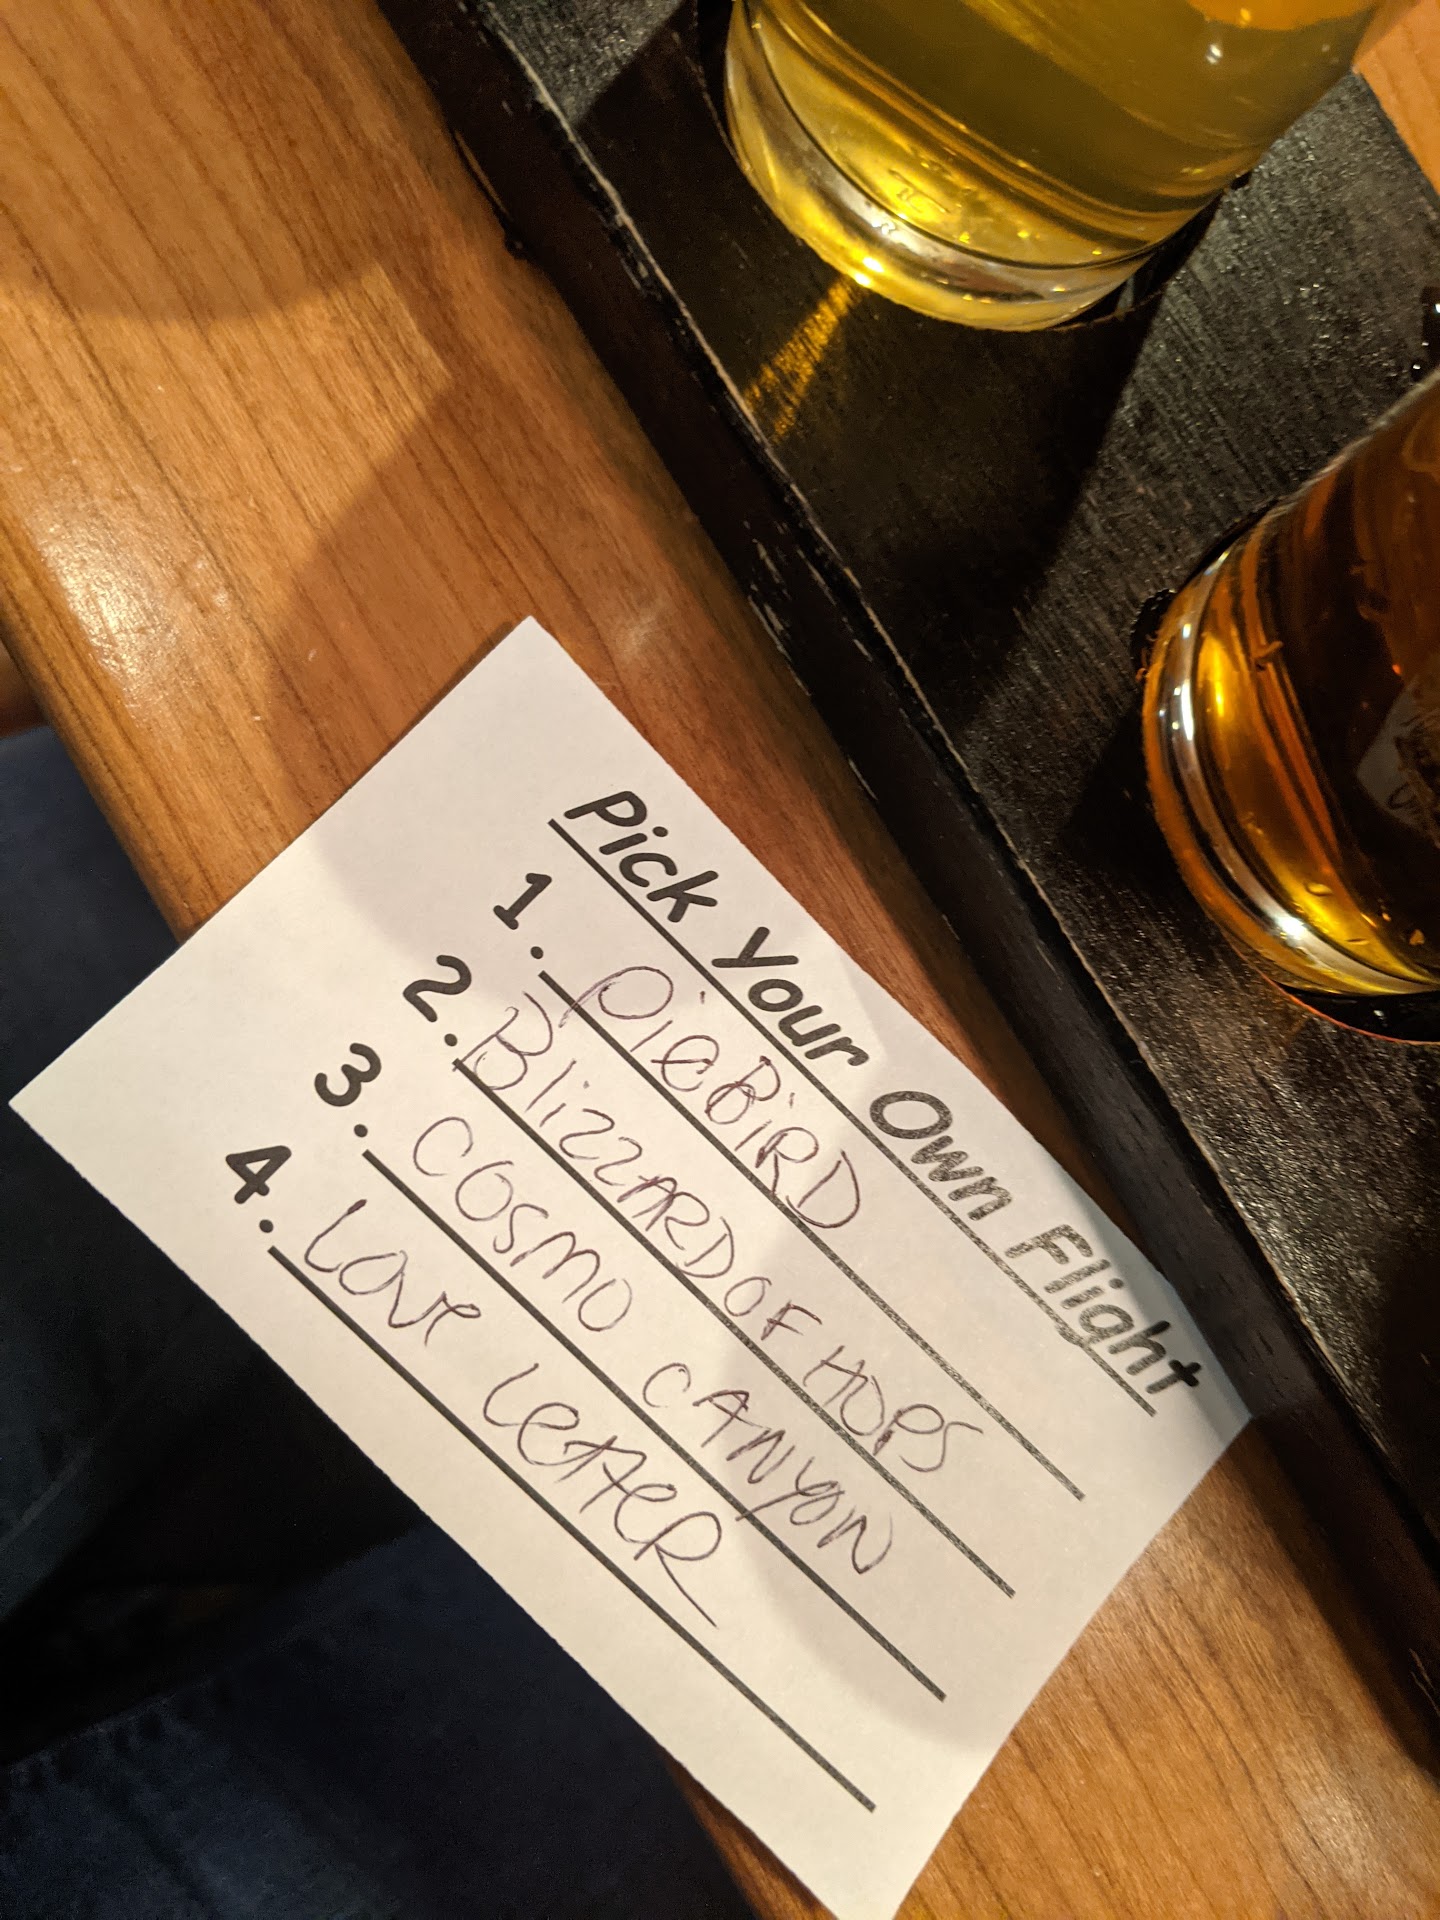 Pick Your Own Flight
1. PieBiRD
2. BlizzARD OF HOPS
3. COSMO CANYON
4. Love LetteR